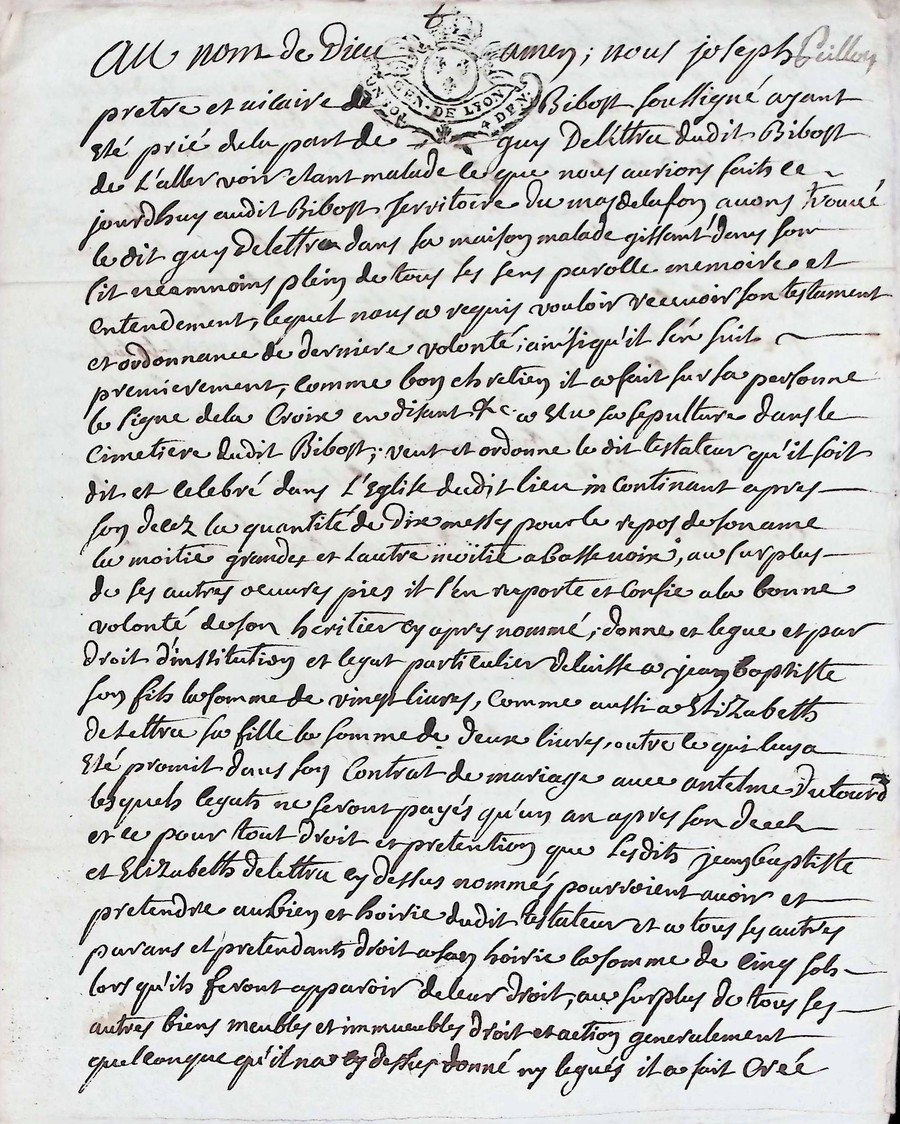 au nom de Dieu amen; nous joseph
GEN·DE LYON
4 DEN
pretre et vicaire de Bibost soussigné ayant
Eté prié dela part de guy Delettra dudit Bibost
de L'aller voir etant malade ce que nous aurions faits ce
jourdhuy audit Bibost territoire du mas delafon avons trouvé
le dit guy Delettra dans sa maison malade gissant dans son
lit neamnoins plein de tous ses sens parolle memoire et
entendement, lequel nous a requis vouloir recevoir son testament
et ordonnance de derniere volonté; ainsi qu'il s'en suit
premierement, comme bon chretien il a fait sur sa personne
le signe dela Croix en disant &c a Elu sa sepulture dans le
cimetiere dudit Bibost; veut et ordonne le dit testateur qu'il soit
dit et celebré dans L'Eglise dudit lieu incontinant apres
son decez la quantité de Dix messes pour le repos de son ame
la moitié grandes et l'autre moitié a basse voix, au surplus
de ses autres oeuvres pies il s'en reporte et confie a la bonne
volonté de son heritier cy apres nommé; donne et legue et par
droit d'institution et legat particulier delaisse a jean Baptiste
son fils la somme de vingt livres, comme aussi a Elizabeth
delettra sa fille la somme de deux livres, outre ce qui luy a
Eté promit dans son Contrat de mariage avec antelme Dutourd
lesquels legats ne seront payés qu'un an apres son decet
et ce pour tout droit et pretention que Lesdits jean baptiste
et Elizabeth delettra cy dessus nommés pourroient avoir et
pretendre aux bien et hoirie dudit testateur et a tous ses autres
parans et pretendants droit a son hoirie la somme de cinq sols
lors qu'ils feront apparoir de leur droit; au surplus de tous ses
autres biens meubles et immeubles droit et action generalement
quelconque qu'il na cy dessus donné ny legués il a fait Créé